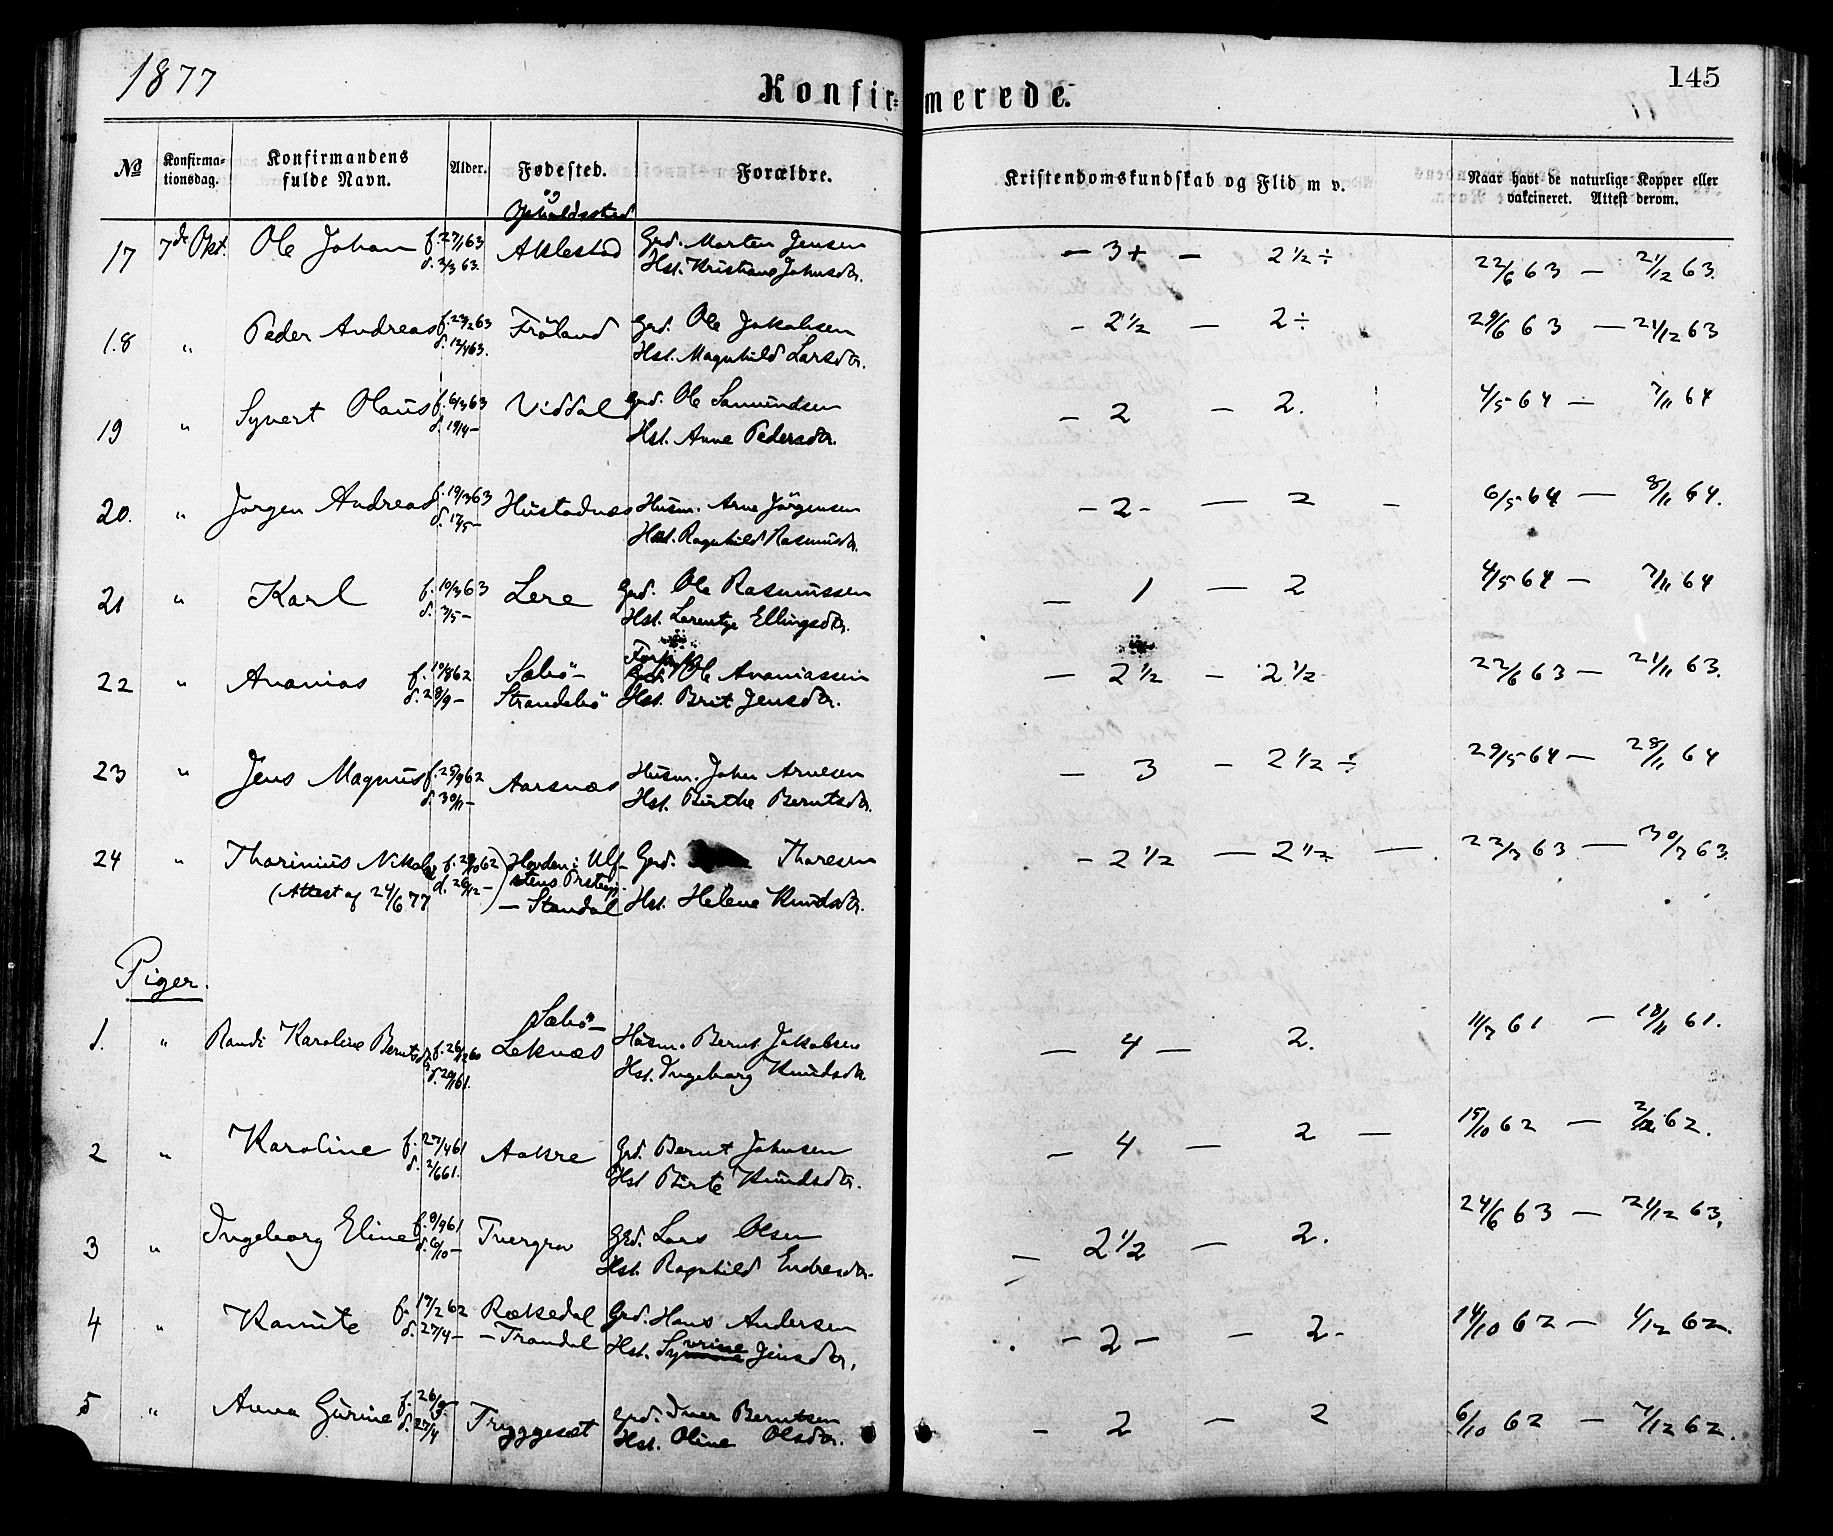 1877
145
Konfir= merede.
№ Konfirma-tionsdag. Konfirmandens fulde Navn. Alder. Fødested. Forældre. Kristendomskundskab og Flid m v. Naar havt de naturlige Kopper eller vakcineret. Attest derom.
og Opholdssted
17 7de Okt. Ole Johan f. 27/1 63 Aklestad Grd. Morten Jensen — 3+ — 2½ ÷ 22/6 63 — 21/12 63.
d. 2/3 63. Hst. Kristiane Johnsdr.
18 " Peder Andreas f. 23/2 63 Fröland Grd. Ole Jakobsen — 2½ — 2 ÷ 29/6 63 — 21/12 63
d. 12/4 63. Hst. Magnhild Larsdr.
19 " Syvert Olaus f. 6/3 63 Viddal Grd. Ole Samundsen — 2 — 2. 4/5 64 — 7/11 64
d. 19/4 — Hst. Anne Pedersdr.
20. " Jørgen Andreas f. 19/3 63 Hustadnæs Husm. Arne Jörgensen — 2 — — 2 — 6/5 64 — 8/11 64.
d. 17/5 — Hst. Ragnhild Rasmusdr.
21 " Karl f. 10/3 63 Lere Grd. Ole Rasmussen — 1 — 2 4/5 64 — 7/11 64
d. 3/5 — Hst. Lorentze Ellingsdr.
22 " Ananias f. 10/8 62 Sæbö- Grd. Ole Ananiassen — 2½ — 2½ 22/6 63 — 21/11 63.
d. 28/9 — Strandebö Hst. Brit Jensdr.
23 " Jens Magnus f. 25/9 62 Aarsnæs Husm. John Arnesen — 3 — 2½ ÷ 29/5 64 — 28/11 64
d. 30/11 — Hst. Birthe Berntsdr.
24 " Thorinius Nikolai f. 29/10 62 Hovden i Ulf- Grd. Thoresen — 2½ — 2½ — 22/7 63 — 30/7 63.
(Attest af 24/6 77 d. 26/12 — stens Prstegj.
— Standal Hst. Helene Knudsdr.
Piger.
1. " Randi Karoline Berntsdr. f. 26/12 60 Sæbö- Husm. Bernt Jakobsen — 4 — 2. 11/7 61 — 18/11 61.
d. 20/1 61. Leknæs Hst. Ingeborg Knudsdr.
2 " Karoline f. 27/4 61 Aakre Grd. Bernt Johnsen — 4 — 2 — 15/10 62 — 2/12 62.
d. 2/6 61. Hst Birte Knudsdr.
3 " Ingeborg Eline f. 8/9 61 Tuergrov Grd. Lars Olsen — 2½ — 2. 24/6 63 — 21/12 63.
d. 6/10 — Hst. Ragnhild Endresdr.
4 " Kanute f. 17/2 62 Rækedal Grd. Hans Andersen — 2 — — 2 - 14/10 62 — 1/12 62.
d. 27/4 — — Trandal Hst. Syverine Jensdr.
5 " Anna Gurine f. 26/ Tryggesæt Grd. Iver Berntsen — 2 — 2 6/10 62 — 7/12 62.
d. 27/4 Hst. Oline Olsdr.